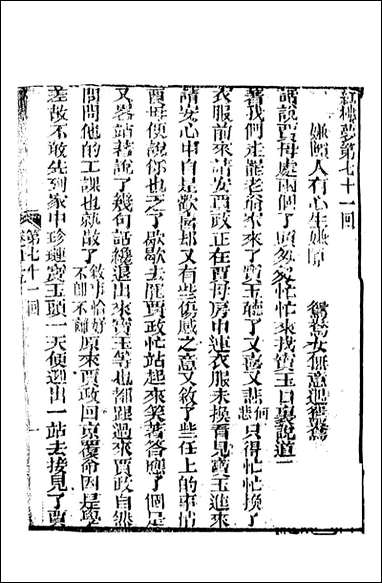 紅樓夢第七十一回
嫌隙人有心生嫌隙　鴛鴦女無意遇鴛鴦
話說賈母處兩個丫頭匆匆忙忙來找寶玉口裏說道二
著我們走罷老爺家來了寶玉聽了又喜又悲只得忙忙換了
衣服前來請安賈政正在賈母房中連衣服未換看見寶玉進來
請安心中自是歡喜却又有些傷感之意又敘了些任上的事情
賈母便說你也乏了歇歇去罷賈政忙站起來笑著答應了個是
又畧站著說了幾句話纔退出來寶玉等也都跟過來賈政自然
問問他的工課也就散了敘事恰好原來賈政回京覆命因是學
差故不敢先到家中珍璉寶玉頭一天便迎出一站去接見了賈
第七十一回